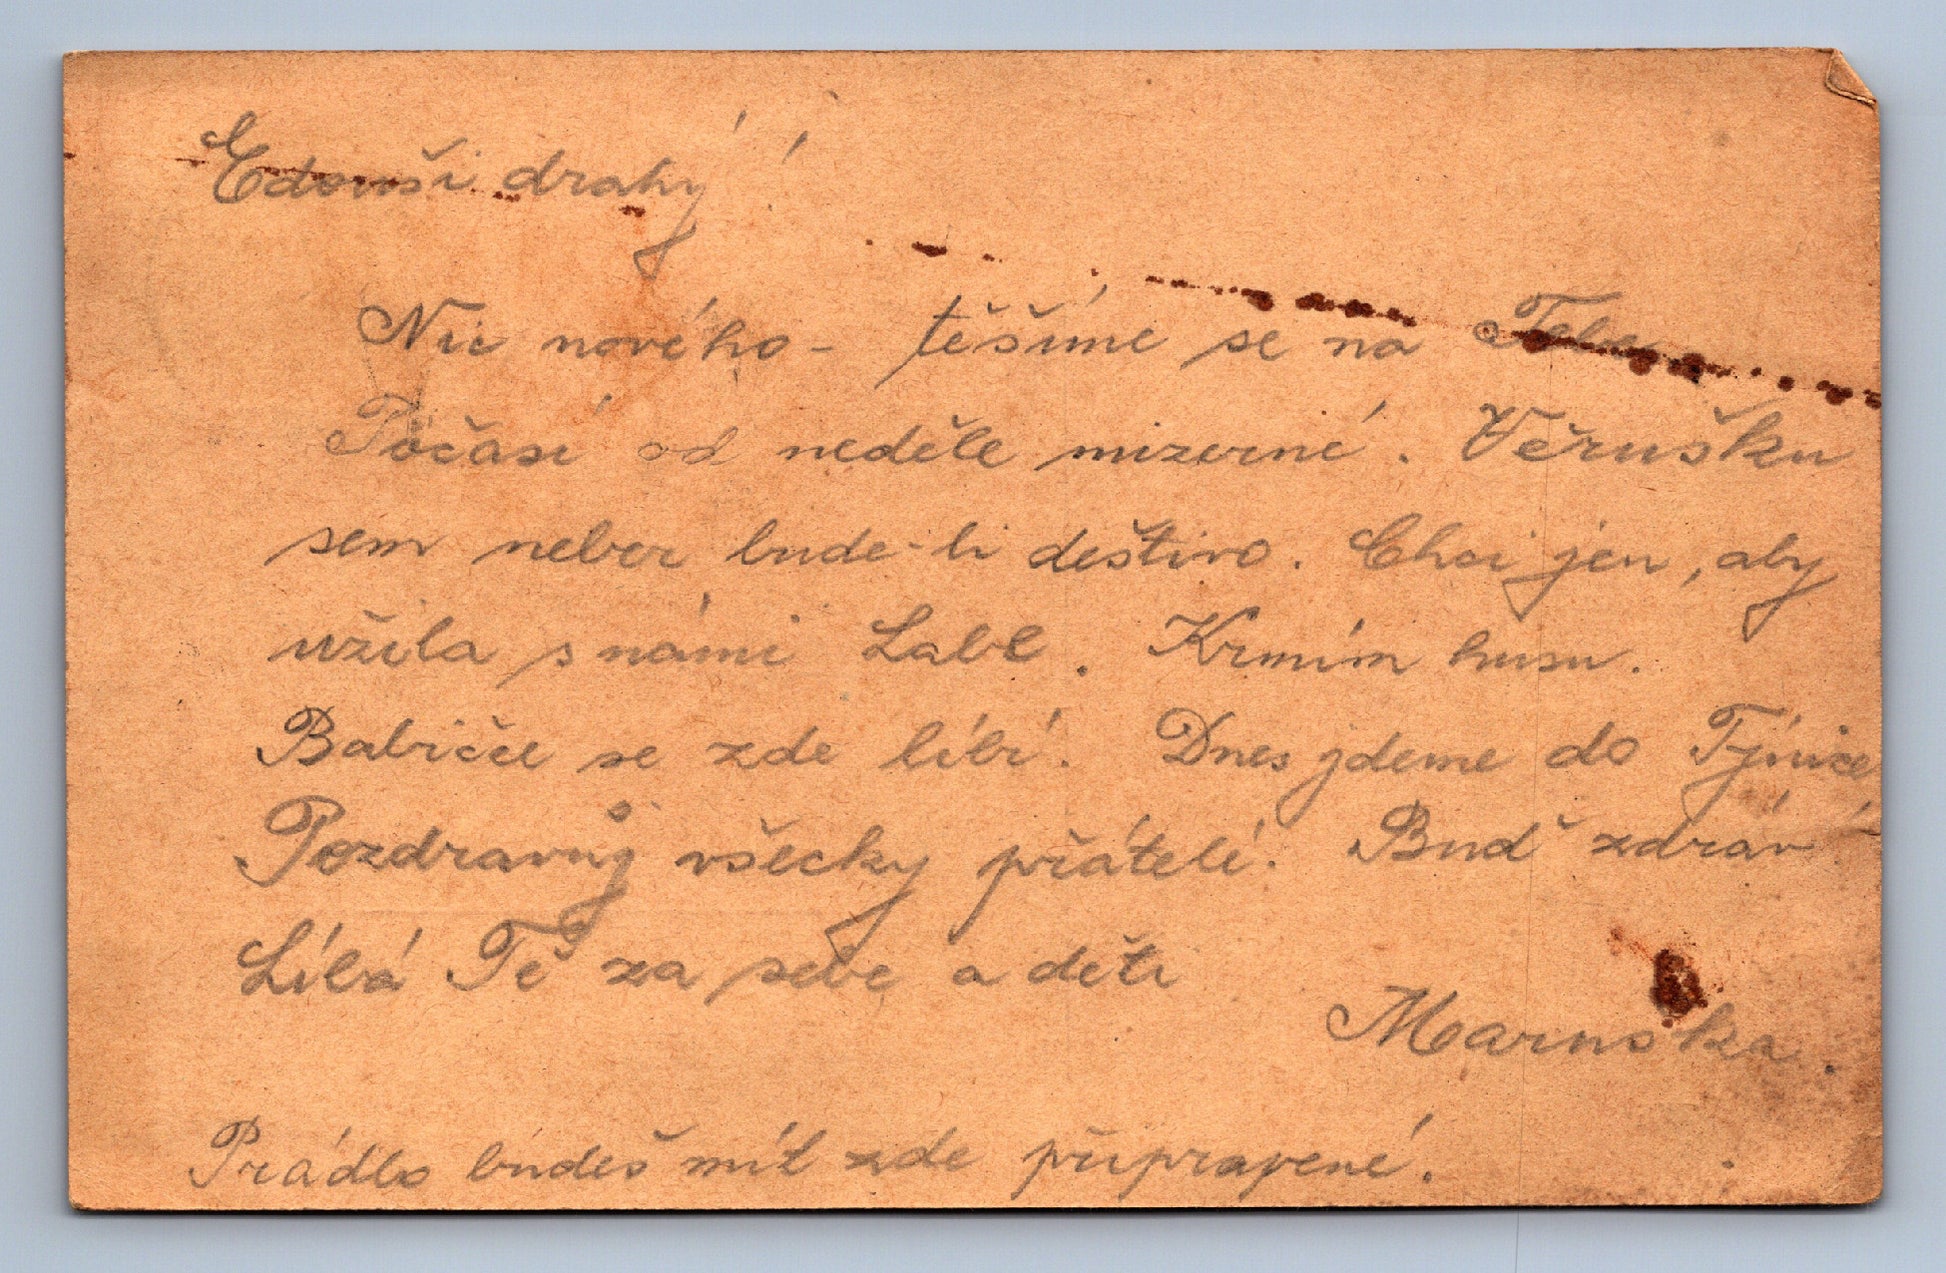 Edouši drahý!
Nic nového - těšíme se na Tebe
Počasí od neděle mizerné. Věrušku
sem neber bude-li deštivo. Chci jen, aby
užila s námi Labe. Krmím husu.
Babičce se zde líbí. Dnes jdeme do Týnice
Pozdravůj všecky přátelé. Buď zdráv!
Líbá Tě za sebe a děti
Maruška.
Prádlo budeš mít zde připravené.